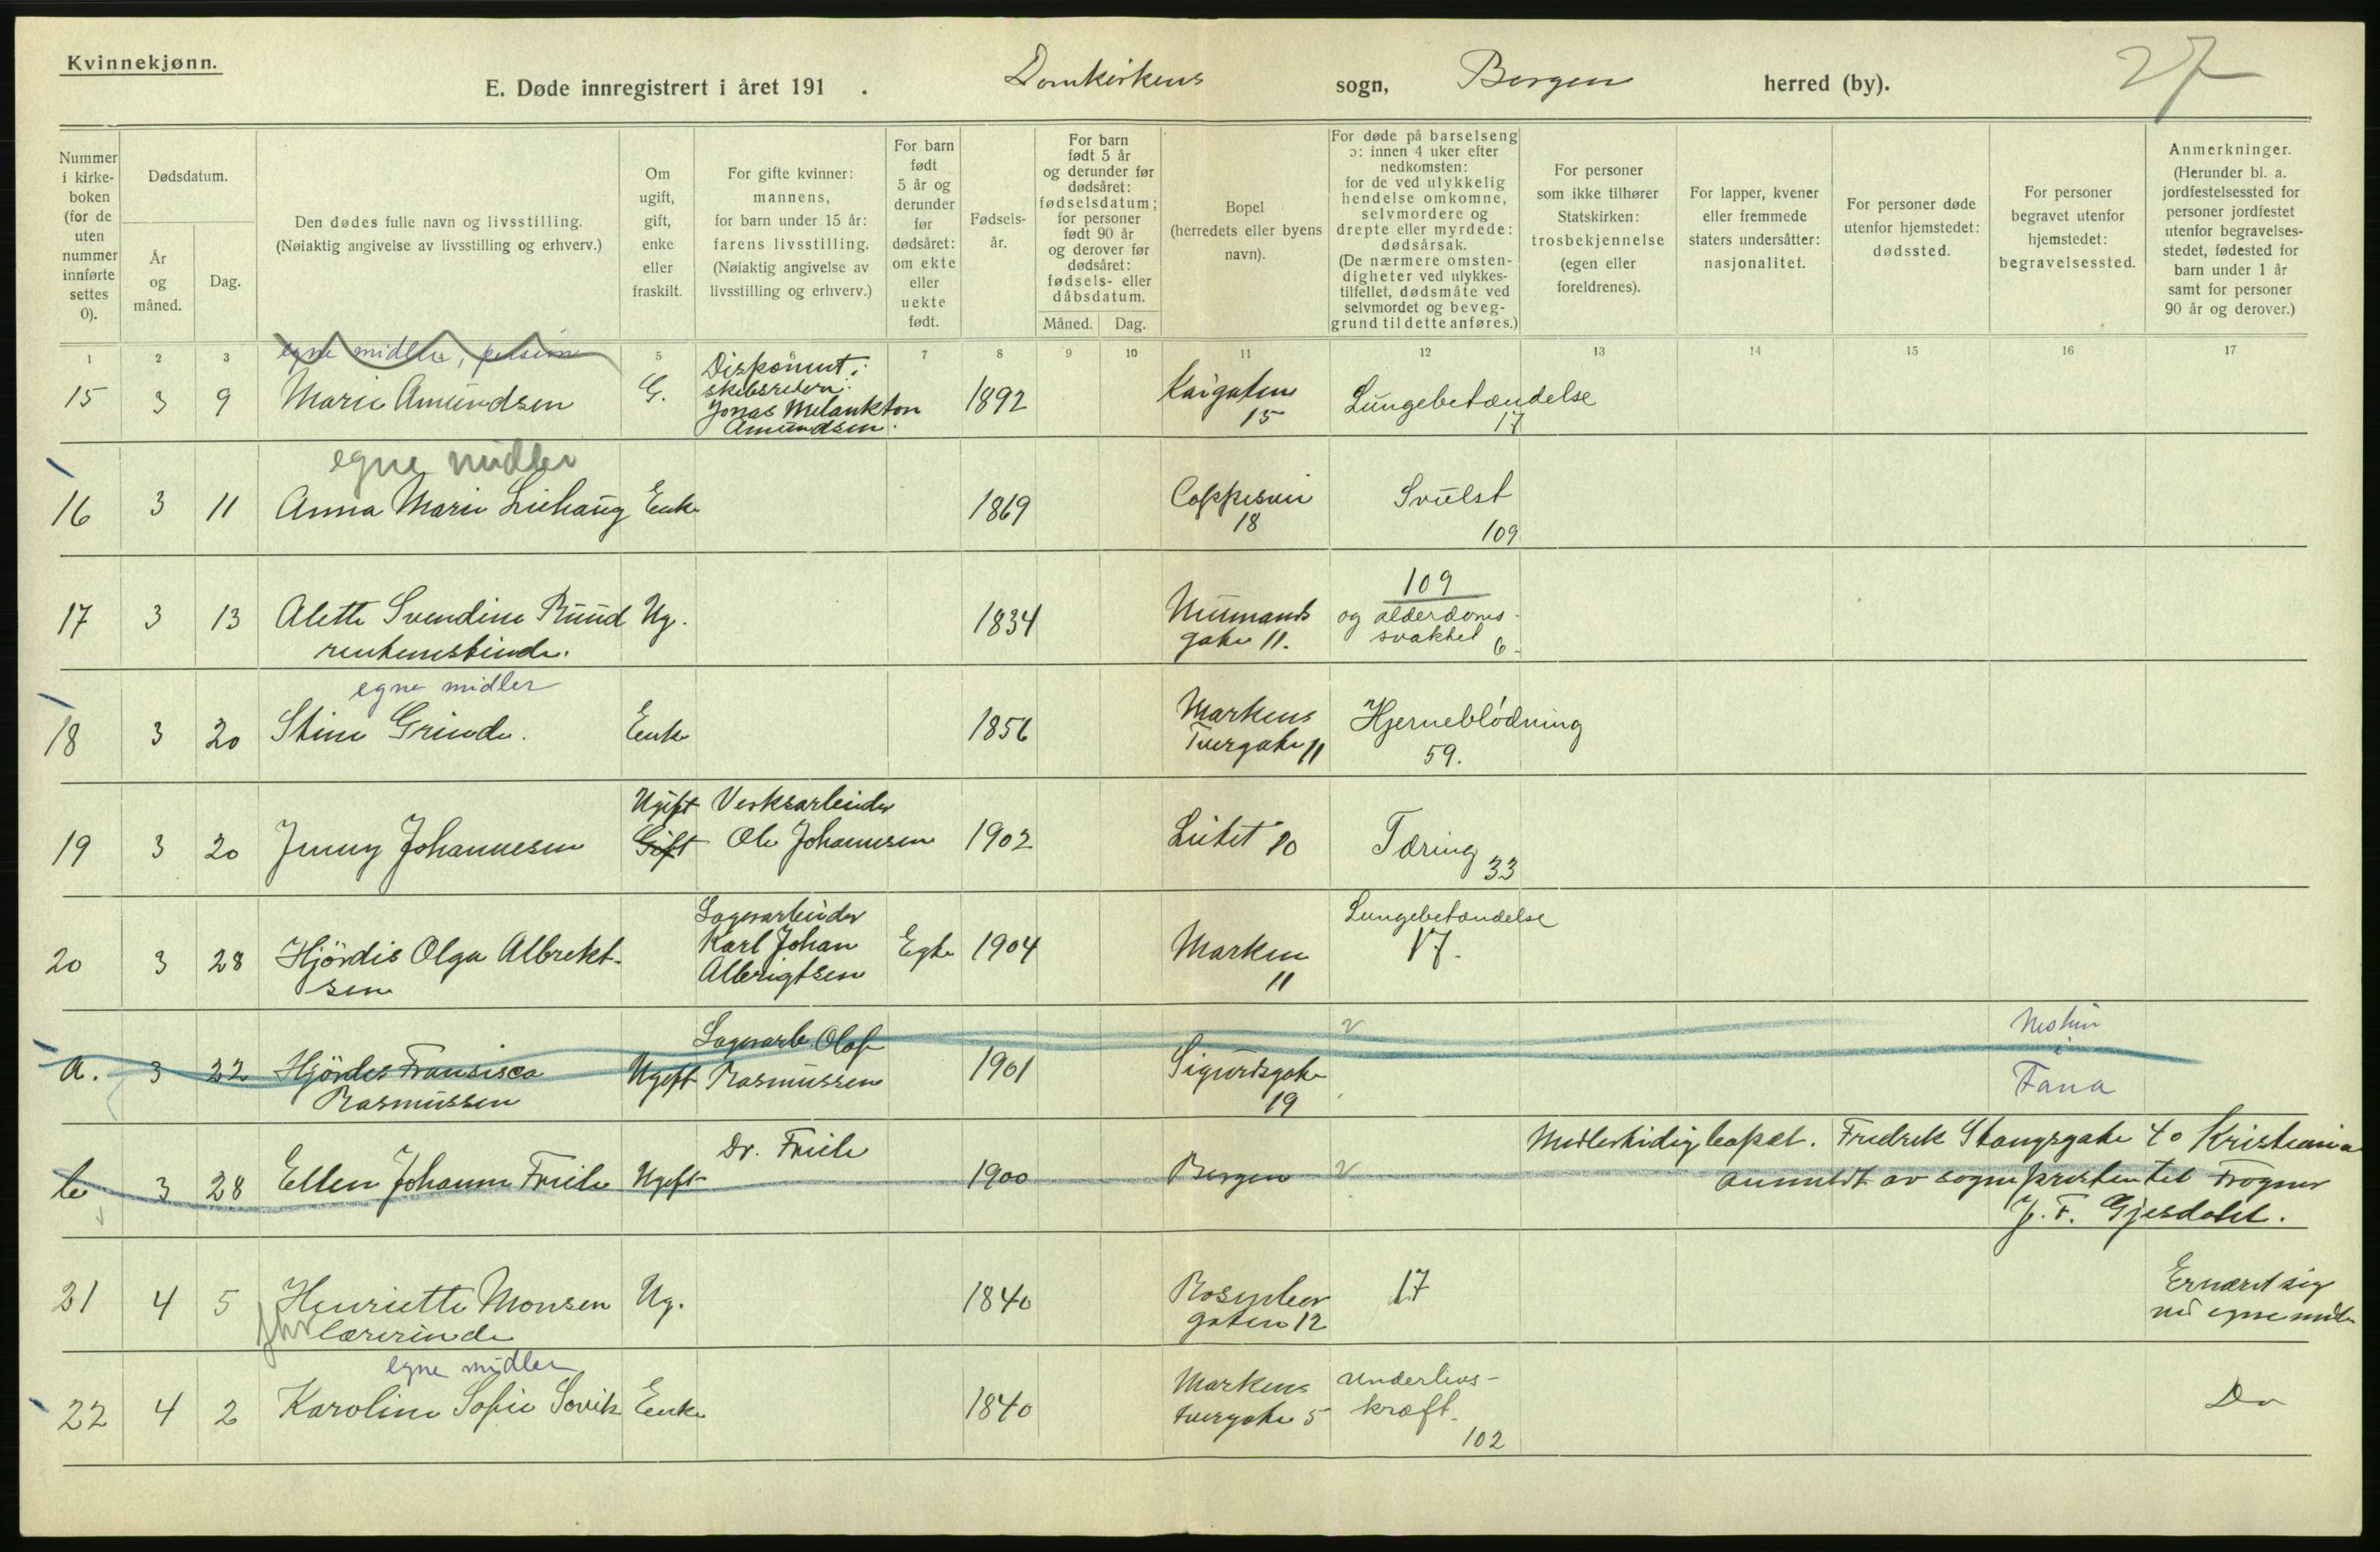 Kvinnekjønn.
E. Døde innregistrert i året 191 . Domkirkens sogn, Bergen herred (by). 27
Nummer
i kirke-
boken
(for de
uten
nummer
innførte
settes
0).
Dødsdatum.
År
og
måned.
Dag.
Den dødes fulle navn og livsstilling.
(Nøiaktig angivelse av livsstilling og erhverv.)
Om
ugift,
gift,
enke
eller
fraskilt.
For gifte kvinner:
mannens,
for barn under 15 år:
farens livsstilling.
(Nøiaktig angivelse av
livsstilling og erhverv.)
For barn
født
5 år og
derunder
før
dødsåret:
om ekte
eller
uekte
født.
Fødsels-
år.
For barn
født 5 år
og derunder før
dødsåret:
fødselsdatum;
for personer
født 90 år
og derover før
dødsåret:
fødsels- eller
dåbsdatum.
Måned. Dag.
Bopel
(herredets eller byens
navn).
For døde på barselseng
ɔ: innen 4 uker efter
nedkomsten:
for de ved ulykkelig
hendelse omkomne,
selvmordere og
drepte eller myrdede:
dødsårsak.
(De nærmere omsten-
digheter ved ulykkes-
tilfellet, dødsmåte ved
selvmordet og beveg-
grund til dette anføres.)
For personer
som ikke tilhører
Statskirken:
trosbekjennelse
(egen eller
foreldrenes).
For lapper, kvener
eller fremmede
staters undersåtter:
nasjonalitet.
For personer døde
utenfor hjemstedet:
dødssted.
For personer
begravet utenfor
hjemstedet:
begravelsessted.
Anmerkninger.
(Herunder bl. a.
jordfestelsessted for
personer jordfestet
utenfor begravelses-
stedet, fødested for
barn under 1 år
samt for personer
90 år og derover.)
1 2 3 5 6 7 8 9 10 11 12 13 14 15 16 17
egne midler, pension
15 3 9 Marie Amundsen G. Diskonnt:
skibsrederi:
Jonas Melankton
Amundsen. 1892 Kaigaten
15 Lungebetændelse
17
egne midler
16 3 11 Anna Marie Liehaug Enke 1869 18 Svulst
109
17 3 13 Alette Svendine Ruud Ug. 1834 Neumands
gate 11. 109
og alderdoms-
svakhet 6.
egne midler
18 3 20 Stine Grinde. Enke 1856 Markens
Tvergate 11 Hjerneblødning
59.
19 3 20 Jenny Johannesen Ugift
Gift Verksarbeider
Ole Johannesen 1902 Lütet 10 Tæring
33
20 3 28 Hjördis Olga Albrekt-
sen Lagerarbeider
Karl Johan
Albrigtsen Egte 1904 Marken
11 Lungebetændelse
17.
a. 3 22 Hjördis Fransisca
Rasmussen Ugift Lagerarb. Olaf
Rasmussen 1901 Sigurdsgate
19 i
Fana
3 28 Ellen Johanne Friele Ugift Dr. Friele 1900 Bergen Fredrik Stangsgate 40 Kristiania
anmeldt av sogneprestentet Frogner
J. F. Gjesdahl.
21 4 5 Henriette Monsen
fhv lærerinde Ug. 1840 Rosenber
gaten 12 17 Ernæret sig
av egne midler
egne midler
22 4 2 Karoline Sofie Sovik Enke 1840 Markens
tvergate 5 Underlivs-
kræft.
102 Do